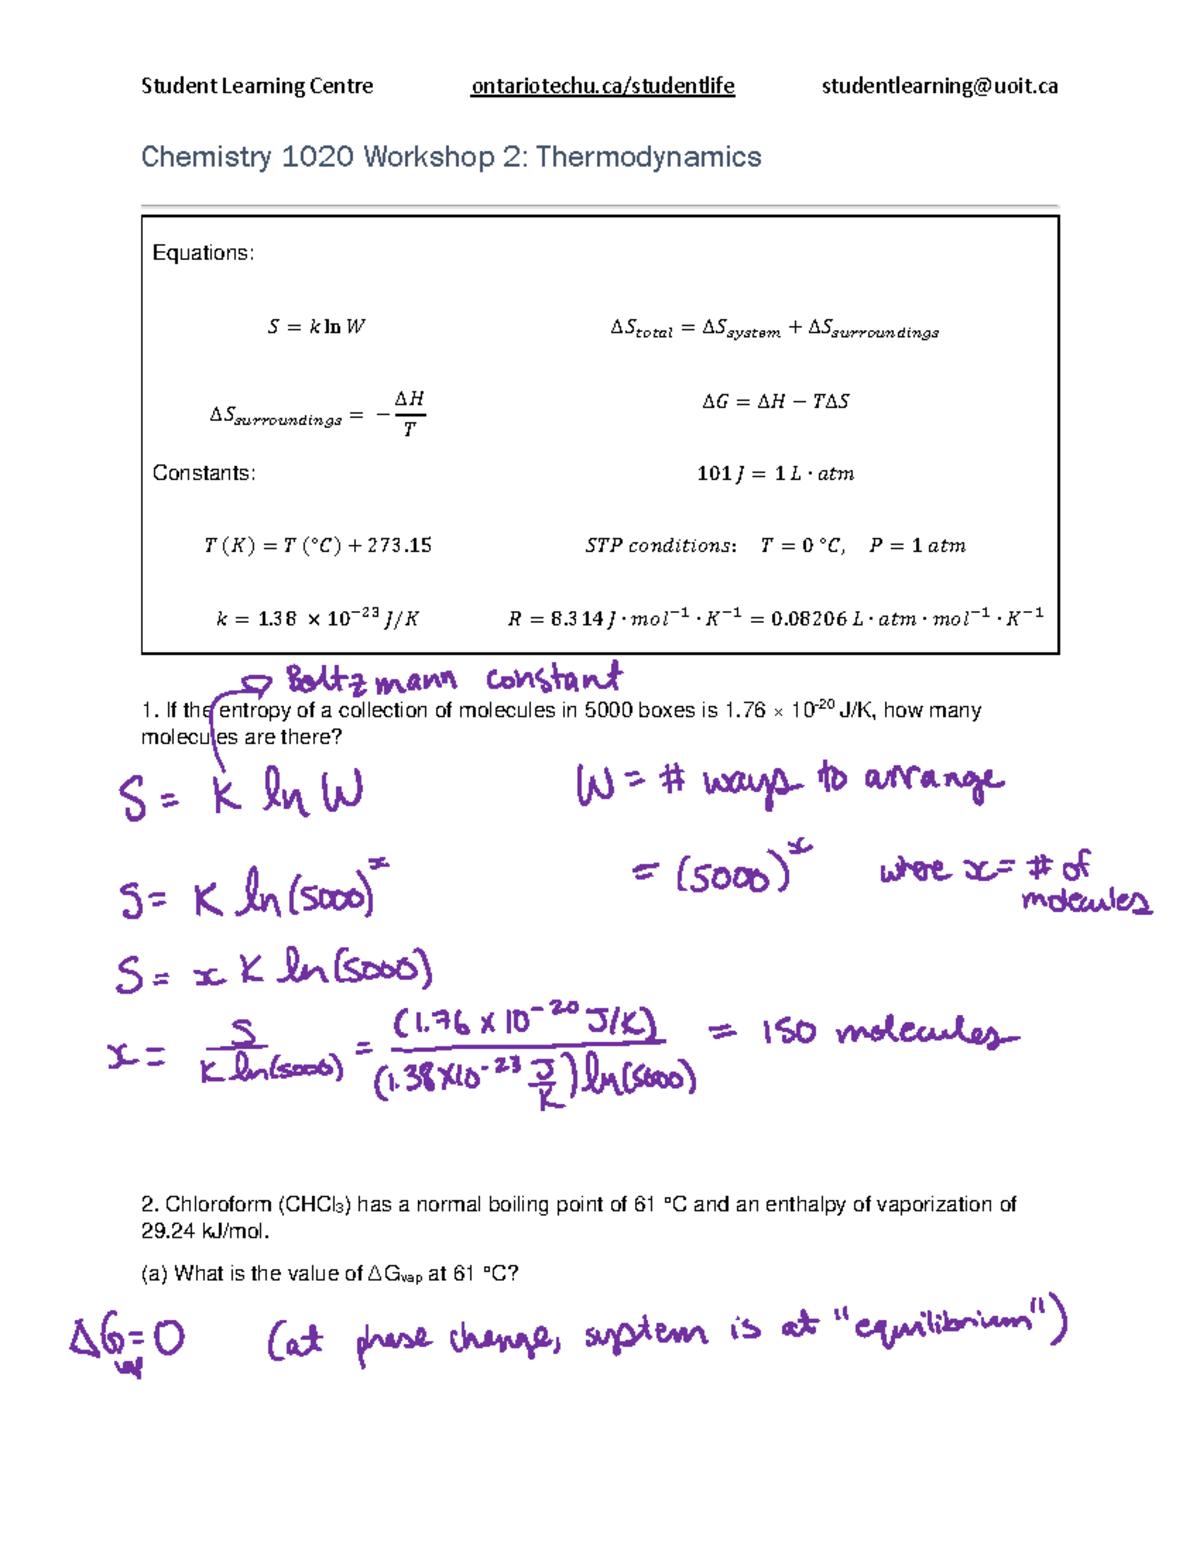 Student Learning Centre ontariotechu.ca/studentlife studentlearning@uoit.ca
Chemistry 1020 Workshop 2: Thermodynamics
Equations:
S = k ln W ΔS_total = ΔS_system + ΔS_surroundings
ΔS_surroundings = − ΔH/T ΔG = ΔH − TΔS
Constants: 101 J = 1 L · atm
T (K) = T (°C) + 273.15 STP conditions: T = 0 °C, P = 1 atm
k = 1.38 × 10⁻²³ J/K R = 8.314 J · mol⁻¹ · K⁻¹ = 0.08206 L · atm · mol⁻¹ · K⁻¹
Boltzmann constant
1. If the entropy of a collection of molecules in 5000 boxes is 1.76 × 10⁻²⁰ J/K, how many
molecules are there?
S = K ln W W = # ways to arrange
S = K ln(5000)ˣ = (5000)ˣ where x = # of
molecules
S = x K ln(5000)
x = S / K ln(5000) = (1.76 x 10⁻²⁰ J/K) / (1.38x10⁻²³ J/K) ln(5000) = 150 molecules
2. Chloroform (CHCl₃) has a normal boiling point of 61 °C and an enthalpy of vaporization of
29.24 kJ/mol.
(a) What is the value of ΔG_vap at 61 °C?
ΔG_vap = 0 (at phase change, system is at "equilibrium")